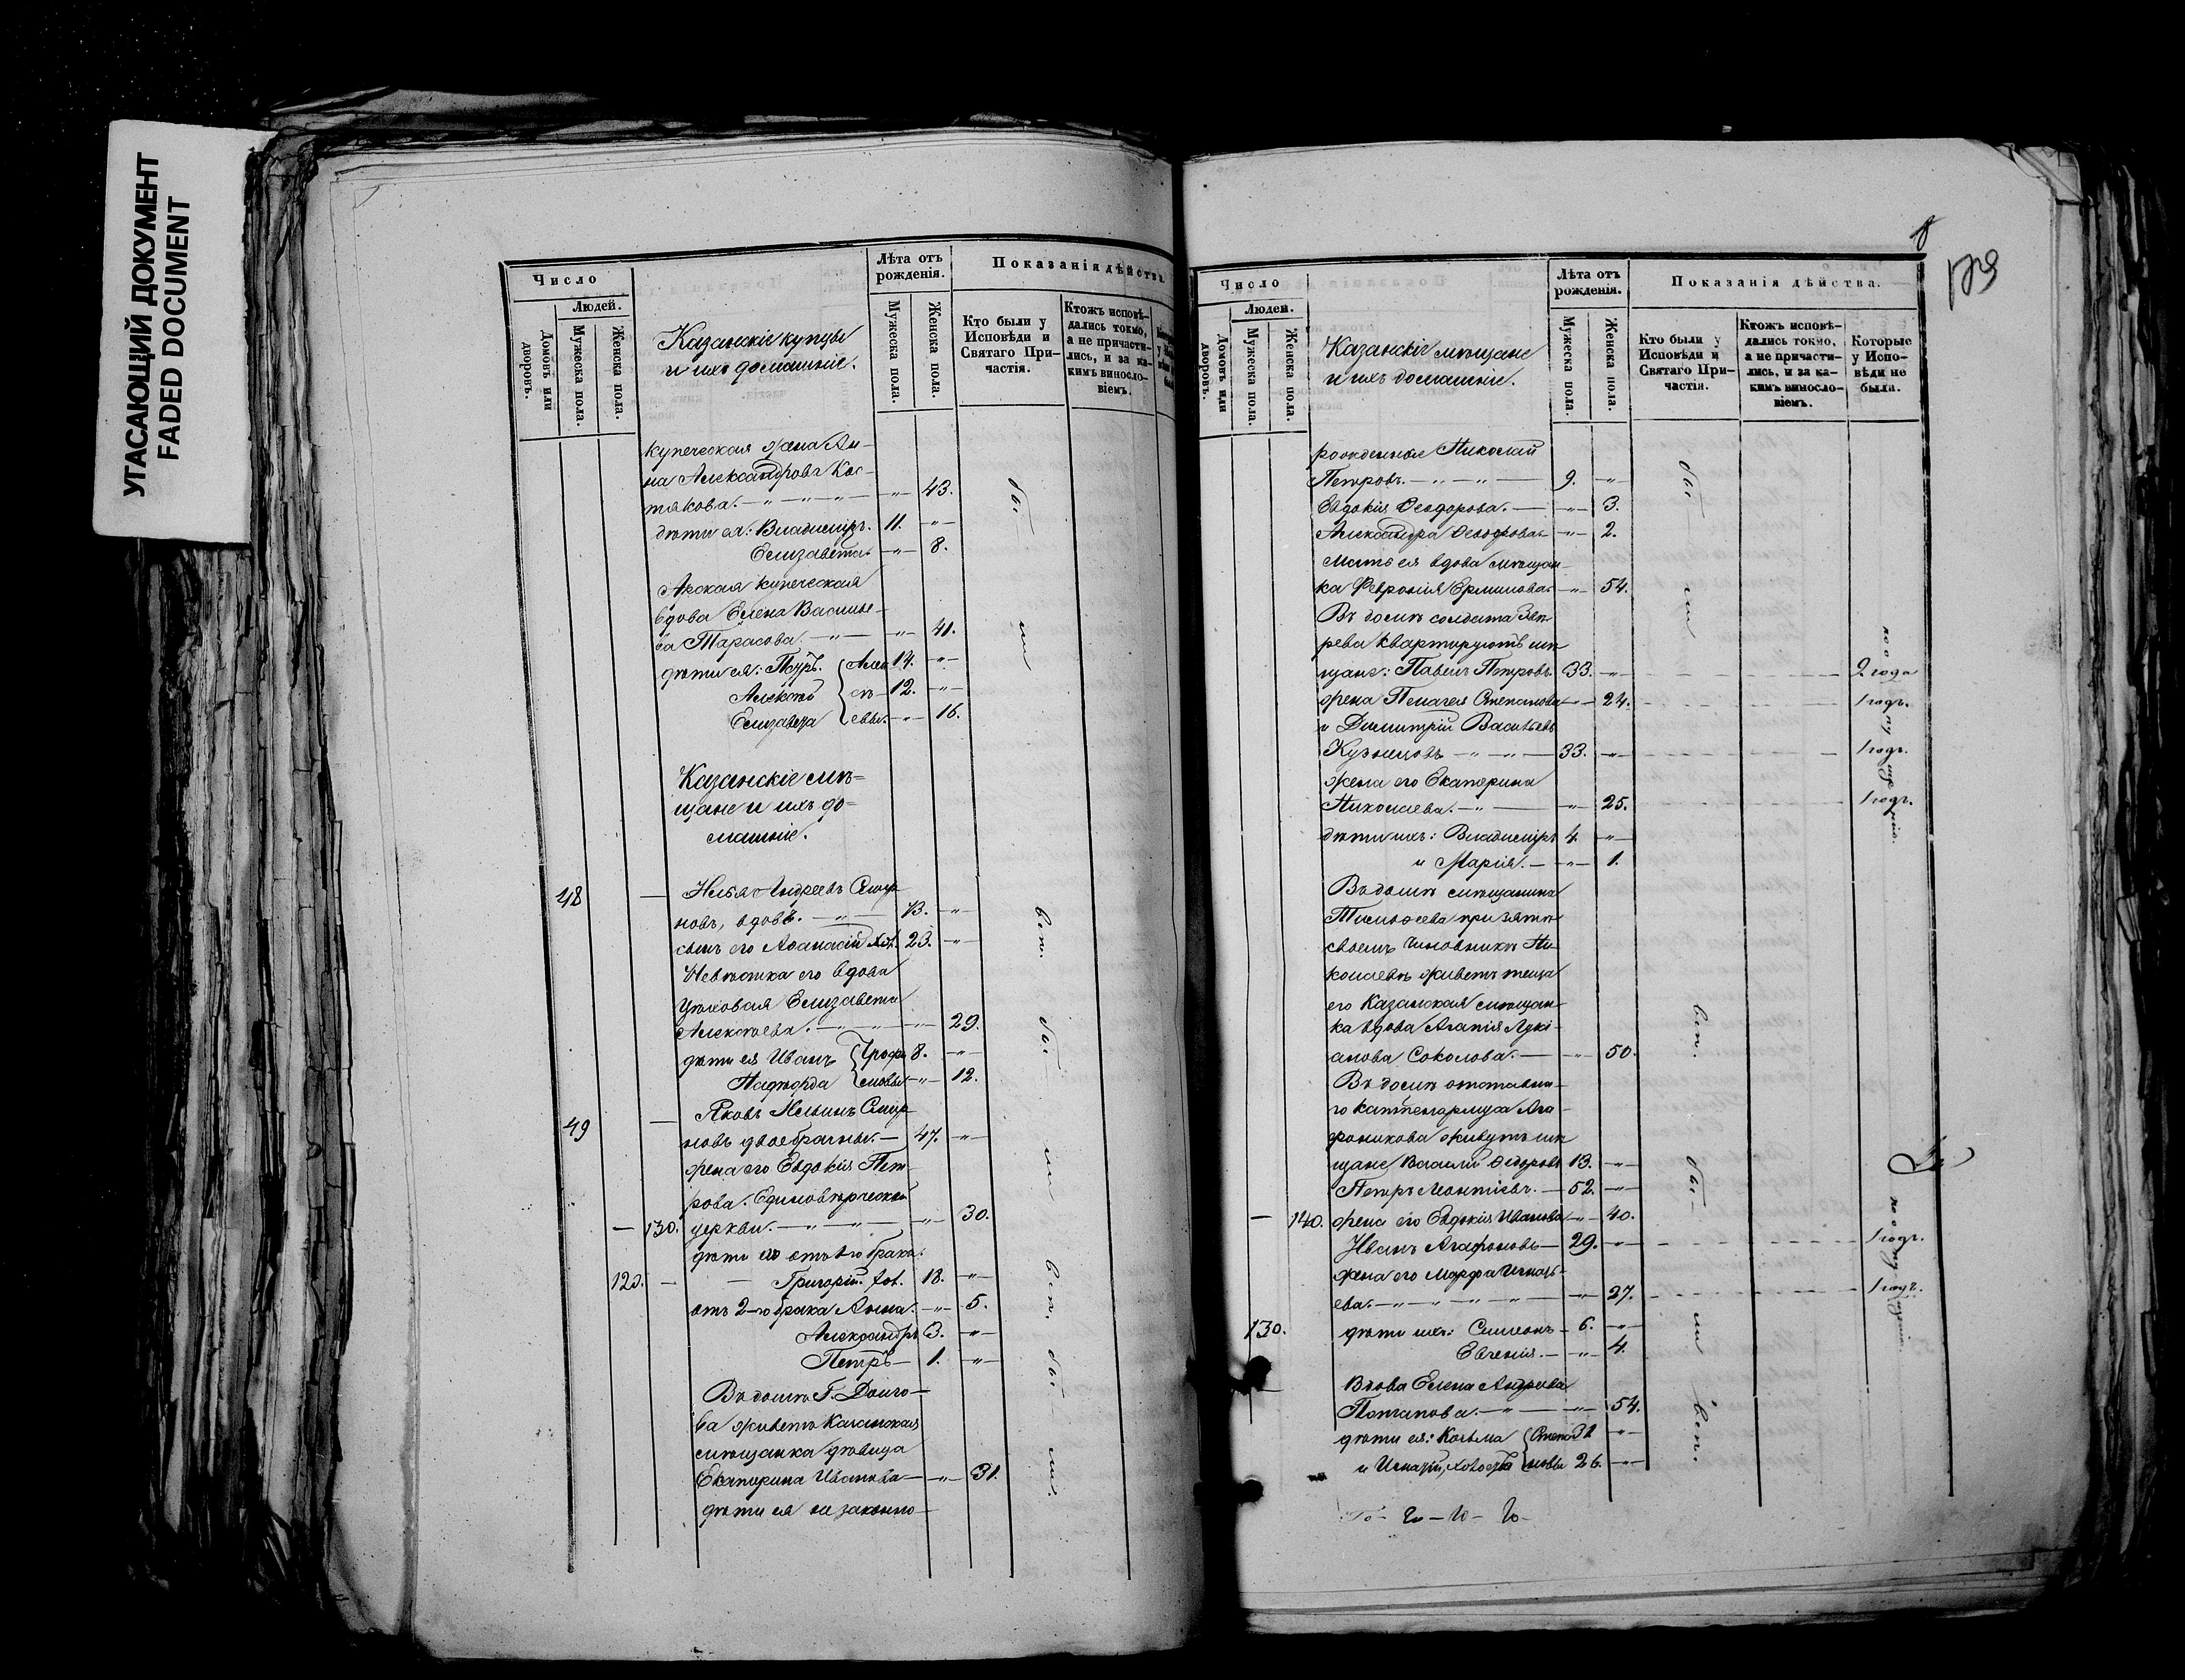 УГАСАЮЩИЙ ДОКУМЕНТ
FADED DOCUMENT
Число
Людей.
Домовъ или дворовъ.
Мужеска пола.
Женска пола.
Казанскіе купцы
и ихъ домашніе.
Лѣта отъ рожденія.
Мужеска пола.
Женска пола.
Показанія дѣйства.
Кто были у Исповѣди и Святаго Причастія.
Ктожъ исповѣдались токмо, а не причастились, и за какимъ винословіемъ.
купеческая жена Ан-
на Александрова Кос-
тякова. — „ — „ — „ — 43.
дѣти ея: Владиміръ. 11. „
Елизавета — „ — 8.
Арская купеческая
вдова Елена Василье-
ва Тарасова. — „ — „ — 41.
дѣти ея: Петръ. { Алек 14. „
Алексѣй { сѣ- 12. „
Елизавета { евы. „ 16.
Казанскіе мѣ=
щане и ихъ до=
машніе.
48 — Илья Андреевъ Смир
новъ, вдовъ. — „ — 73. „
сынъ его Аѳанасій хол. 23. „
Невѣстка его вдова
цеховая Елизавета
Алексѣева. — „ — „ — 29.
дѣти ея Иванъ { Трофи 8. „
Надежда { мовы „ 12.
49 — Яковъ Ильинъ Смир
новъ двоебрачный. — 47. „
жена его Евдокія Пет-
рова. Единовѣрческой
— 130. церкви. — „ — „ — „ — 30.
дѣти его отъ 1-го брака:
120. — Григорій хол. 18. „
отъ 2-го брака Анна. „ 5.
Александръ 3. „
Петръ — 1. „
Въ домѣ Г. Долго-
ва живетъ Казанская
мѣщанка дѣвица
Екатерина Иванова — „ — 31.
дѣти ея незаконно-
бы-
ли
вел.
бы-
ли
вел.
бы-
ли.
8
Число
Людей.
Домовъ или дворовъ.
Мужеска пола.
Женска пола.
Казанскіе мѣщане
и ихъ домашніе.
Лѣта отъ рожденія.
Мужеска пола.
Женска пола.
Показанія дѣйства.
Кто были у Исповѣди и Святаго Причастія.
Ктожъ исповѣдались токмо, а не причастились, и за какимъ винословіемъ.
Которые у Исповѣди не были.
рожденные Николай
Петровъ. — „ — „ — 9. „
Евдокія Ѳеодорова. — „ — 3.
Александра Ѳеодорова — „ — 2.
Мать ея вдова мѣщан-
ка Февронія Ермилова — „ — 54.
Въ домѣ солдата Звѣ
рева квартируютъ мѣ
щане: Павелъ Петровъ 33. „ 2 года
жена Пелагея Степанова „ 24. 1 годъ.
и Димитрій Васильевъ
Кузнецовъ — „ — „ — 33. „ 1 годъ.
жена его Екатерина
Николаева. — „ — „ — 25. 1 годъ.
дѣти ихъ: Владиміръ 4. „
и Марія. — „ — 1.
Въ домѣ мѣщанина
своемъ чиновникѣ Ни
колаевѣ живетъ теща
его Казанская мѣщан-
ка вдова Агапія Лукі-
анова Соколова. — „ — 50.
Въ домѣ отставна-
го каптенармуса Ага-
фоникова живутъ мѣ
щане Василій Ѳедоровъ 13. „
Петръ Леонтіевъ. — 52. „
— 140. жена его Евдокія Иванова „ 40.
Иванъ Агафоновъ — 29. „ 1 годъ.
жена его Марфа Игнать-
ева. — „ — „ — „ — „ — 27. 1 годъ.
130. дѣти ихъ: Симеонъ — 6. „
Евгенія. — „ — 4.
Вдова Елена Андреева
Потапова. — „ — „ — 54.
дѣти ея: Козьма { Степа 31 „
и Игнатій, холосты { новы 26. „
бы-
ли
вел.
бы-
ли
вел.